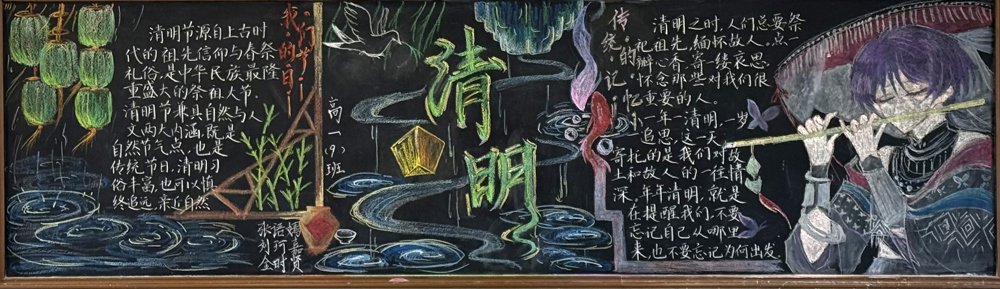 我们的节日
清明节源自上古时
代的祖先信仰与春祭
礼俗,是中华民族最隆
重盛大的祭祖大节.
清明节兼具自然与人
文两大内涵,既是
自然节气点,也是
传统节日,清明习
俗丰富,也可以慎
终追远,亲近自然
高一(9)班
清明
传统的记忆
清明之时,人们总要祭
祀祖先,缅怀故人.点一
瓣心香,寄一缕哀思
怀念那些对我们很
重要的人.
一年一清明,一岁
一追思,这一天,
寄托的是我们对故
土和故人的一往情
深,年年清明,就是
在提醒我们,不要
忘记自己从哪里
来,也不要忘记为何出发.